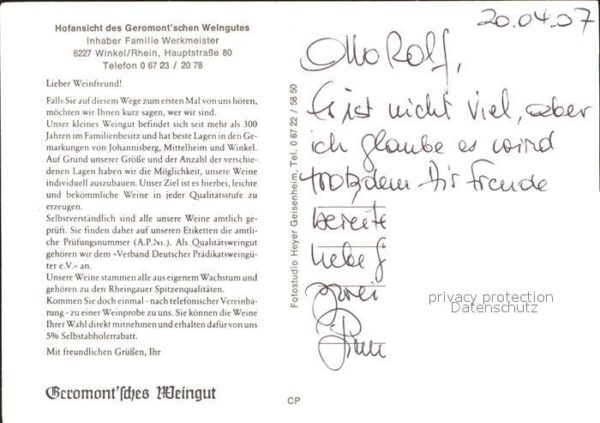 Hofansicht des Geromont'schen Weingutes
Inhaber Familie Werkmeister
6227 Winkel/Rhein, Hauptstraße 80
Telefon 0 67 23 / 20 78
Lieber Weinfreund!
Falls Sie auf diesem Wege zum ersten Mal von uns hören,
möchten wir Ihnen kurz sagen, wer wir sind.
Unser kleines Weingut befindet sich seit mehr als 300
Jahren im Familienbesitz und hat beste Lagen in den Ge-
markungen von Johannisberg, Mittelheim und Winkel.
Auf Grund unserer Größe und der Anzahl der verschie-
denen Lagen haben wir die Möglichkeit, unsere Weine
individuell auszubauen. Unser Ziel ist es hierbei, leichte
und bekömmliche Weine in jeder Qualitätsstufe zu
erzeugen.
Selbstverständlich sind alle unsere Weine amtlich ge-
prüft. Sie finden daher auf unseren Etiketten die amtli-
che Prüfungsnummer (A.P.Nr.). Als Qualitätsweingut
gehören wir dem »Verband Deutscher Prädikatsweingü-
ter e.V.« an.
Unsere Weine stammen alle aus eigenem Wachstum und
gehören zu den Rheingauer Spitzenqualitäten.
Kommen Sie doch einmal - nach telefonischer Vereinba-
rung - zu einer Weinprobe zu uns. Sie können die Weine
Ihrer Wahl direkt mitnehmen und erhalten dafür von uns
5% Selbstabholerrabatt.
Mit freundlichen Grüßen, Ihr
Geromont'sches Weingut
Fotostudio Heyer Geisenheim, Tel. 0 67 22 / 58 50
CP
20.04.07
Rolf,
Es ist nicht viel, aber
ich glaube es wird
trotzdem Dir Freude
bereite
privacy protection
Datenschutz